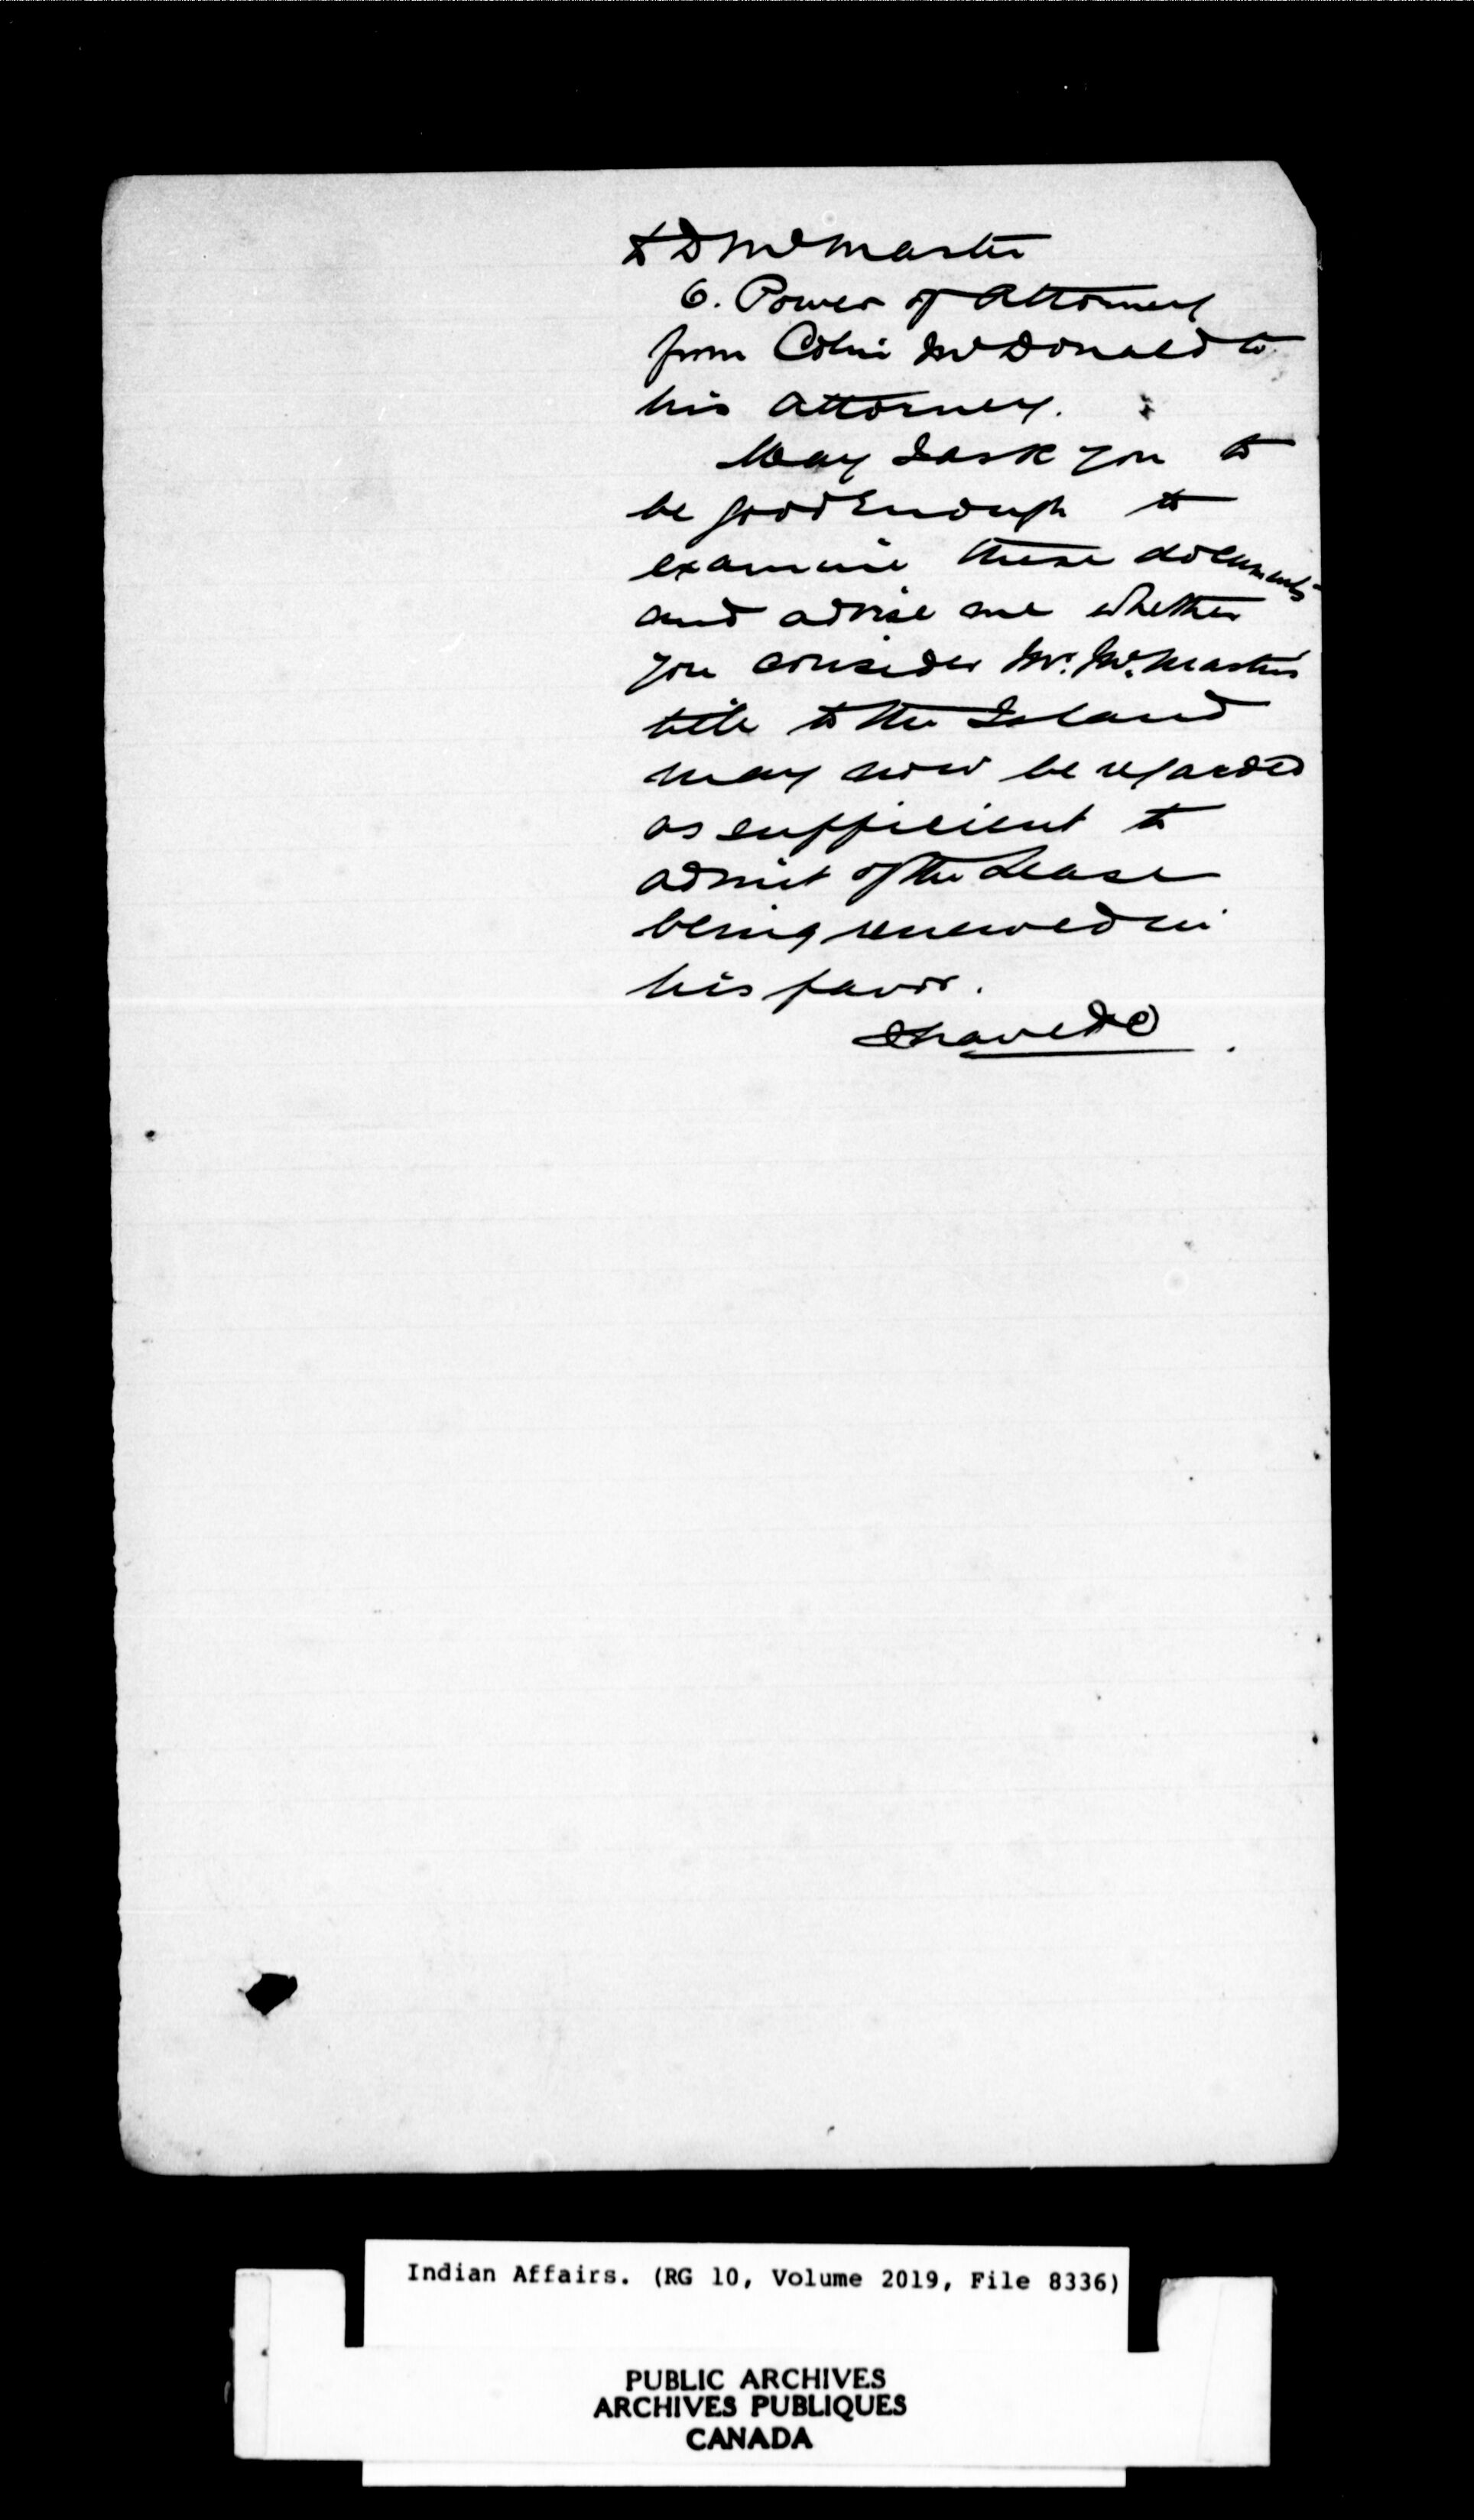 to D McMaster
6. Power of Attorney
from Colin McDonald to
his Attorney.
May I ask you to
be good enough to
examine these documents
and advise me whether
you consider Mr. McMaster's
title to the Island
may now be regarded
as sufficient to
admit of the Lease
being renewed in
his favor.
I have &c
Indian Affairs. (RG 10, Volume 2019, File 8336)
PUBLIC ARCHIVES
ARCHIVES PUBLIQUES
CANADA